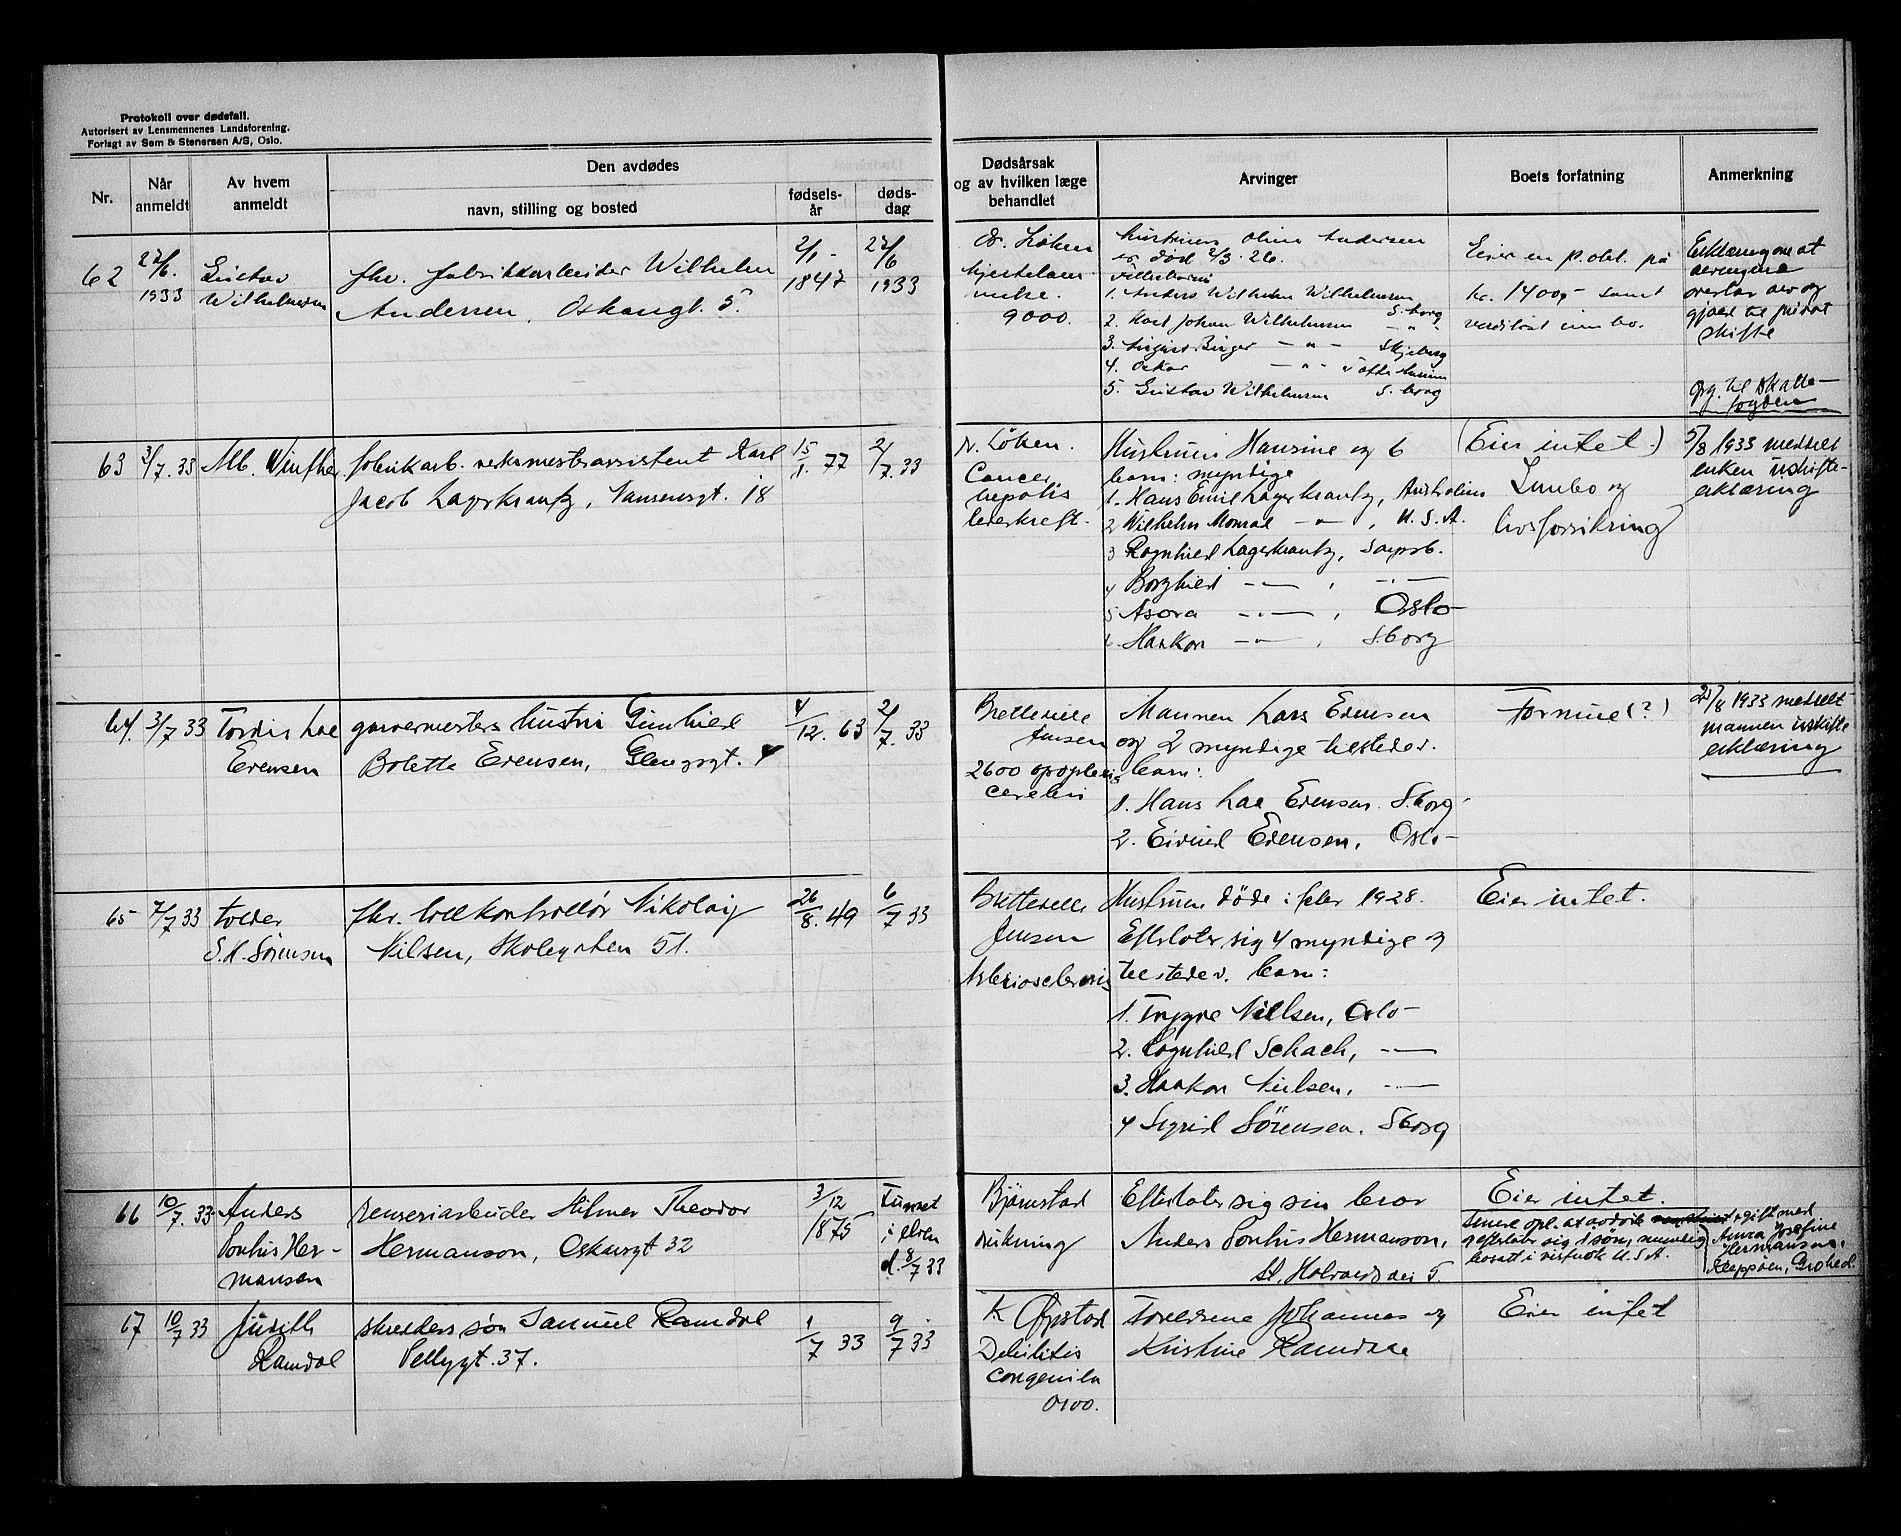 Protokoll over dødsfall.
Autorisert av Lensmennenes Landsforening.
Forlagt av Sem & Stenersen A/S, Oslo.
Nr.
Når anmeldt
Av hvem anmeldt
Den avdødes
navn, stilling og bosted
fødsels-
år
døds-
dag
Dødsårsak
og av hvilken læge
behandlet
Arvinger
Boets forfatning
Anmerkning
62
27/6.
1933
Gustav
Wilhelmsen
fhv. fabrikkarbeider Wilhelm
Andersen, Oskarsgt. 5.
2/1 -
1847
27/6
1933
dr. Løken
9000.
Hustruen Oline Andersen
er død 2/3-26.
1. Anders Wilhelm Wilhelmsen
S.borg
2. Karl Johan Wilhelmsen - " -
3. August Birger - " - Skjeberg
4. Oskar - " -
5. Gustav Wilhelmsen S.borg
Eier en p.obl. på
kr. 1400,- samt
verdiløst innbo.
Erklæring om at
arvingene
overtar arv og
gjæld til privat
skifte
Opg. til skatte-
fogden
63
3/7.33
Alb. Winther
fabrikarb. verksmesterassistent Karl
Jacob Lagerkrantz, Nansensgt. 18
15/1. 77
2/7. 33
dr. Løken.
Cancer
hepatis
leverkreft.
Hustruen Hansine og 6
barn: myndige
1. Hans Emil Lagerkrantz, Australien
2 Wilhelm Monrad - " - , U.S.A.
3 Ragnhild Lagerkrantz, Sarpsb.
4 Borghild - " - , - " -
5 Asora - " - , Oslo
6. Haakon - " - , S.borg
(Eier intet.)
Innbo og
livsforsikring
5/8 1933 meddelt
enken uskifte-
erklæring
64.
3/7 33
Tordis Lae
Evensen
garvermesters hustru Gunhild
Bolette Evensen, Glengsgt. 4
4/12. 63
2/7. 33
Bretteville
Jensen
2600 apoplexia
cerebri
Mannen Lars Evensen
og 2 myndige tilstedev.
barn:
1. Hans Lae Evensen. S.borg
2. Eivind Evensen, Oslo
Formue (?)
1933 meddelt
mannen uskifte
erklæring
65
7/7 33
Tolder
S.H. Sørensen
fhv. tollkontrollør Nikolai
Nilsen, Skolegaten 51.
26/8. 49
6/7 33
Bretteville
Jensen
Arteriosclerosis
Hustruen døde i febr 1928.
Efterlater sig 4 myndige og
tilstedev. barn:
1. Trygve Nilsen, Oslo
2. Ragnhild Schach, - " -
3. Haakon Nilsen, - " -
4 Sigrid Sørensen. S.borg
Eier intet.
66
10/7. 33
Anders
Pontus Her-
mansen
renseriarbeider Hilmer Theodor
Hermanson, Oskarsgt 32
3/12
1875
Funnet
i elven
d. 8/7 33
Bjørnstad
drukning
Efterlater sig sin bror
Anders Pontus Hermanson,
St. Halvards vei 5.
Eier intet.
Senere opl. at avdøde er gift med
Anna Josefine
Hermanson,
efterlater sig 1 sønn,
bosatt i U.S.A.
67
10/7 33
Judith
Ramdal
skredders søn Samuel Ramdal
Pellygt. 37.
1/7 33
9/7 33
K Ørstad
Debilitis
congenita
0100.
Foreldrene Johannes og
Kristine Ramdal
Eier intet